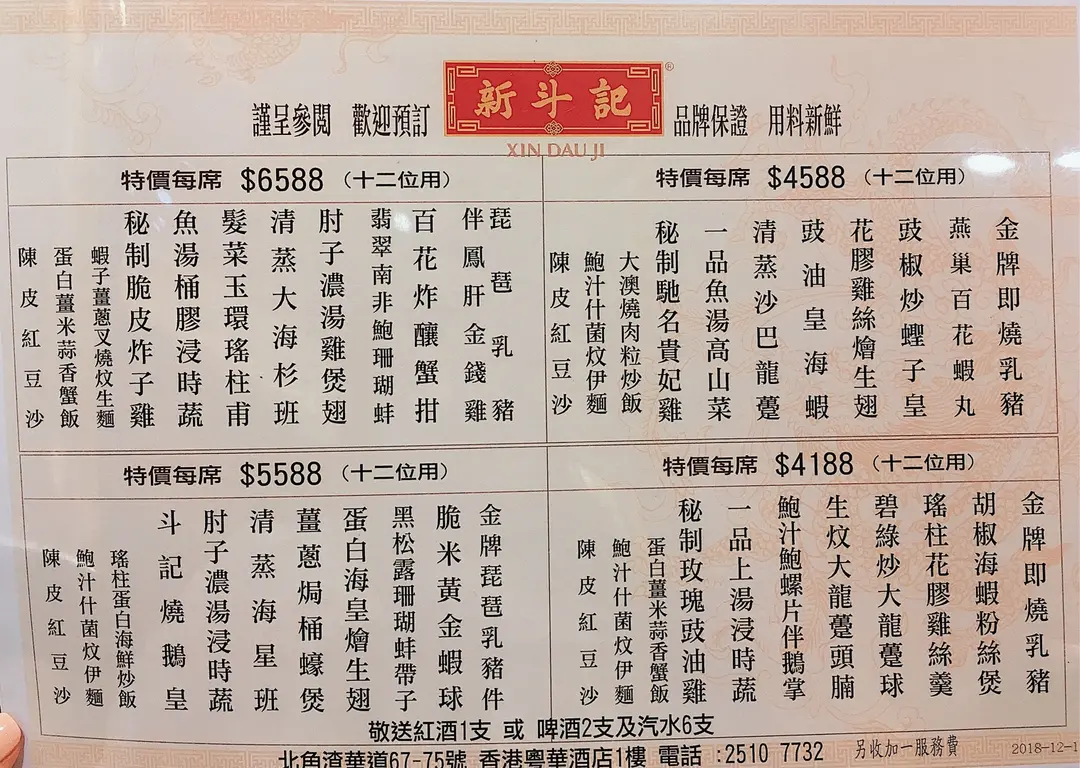 謹呈參閱 歡迎預訂
新斗記®
XIN DAU JI
品牌保證 用料新鮮
特價每席 $4588 (十二位用)
金牌即燒乳豬
燕巢百花蝦丸
豉椒炒蟶子皇
花膠雞絲燴生翅
豉油皇海蝦
清蒸沙巴龍躉
一品魚湯高山菜
秘制馳名貴妃雞
大澳燒肉粒炒飯
鮑汁什菌炆伊麵
陳皮紅豆沙
特價每席 $6588 (十二位用)
琵琶乳豬
伴鳳肝金錢雞
百花炸釀蟹拑
翡翠南非鮑珊瑚蚌
肘子濃湯雞煲翅
清蒸大海杉班
髮菜玉環瑤柱甫
魚湯桶膠浸時蔬
秘制脆皮炸子雞
蝦子薑蔥叉燒炆生麵
蛋白薑米蒜香蟹飯
陳皮紅豆沙
特價每席 $4188 (十二位用)
金牌即燒乳豬
胡椒海蝦粉絲煲
瑤柱花膠雞絲羹
碧綠炒大龍躉球
生炆大龍躉頭腩
鮑汁鮑螺片伴鵝掌
一品上湯浸時蔬
秘制玫瑰豉油雞
蛋白薑米蒜香蟹飯
鮑汁什菌炆伊麵
陳皮紅豆沙
特價每席 $5588 (十二位用)
金牌琵琶乳豬件
脆米黃金蝦球
黑松露珊瑚蚌帶子
蛋白海皇燴生翅
薑蔥焗桶蠔煲
清蒸海星班
肘子濃湯浸時蔬
斗記燒鵝皇
瑤柱蛋白海鮮炒飯
鮑汁什菌炆伊麵
陳皮紅豆沙
敬送紅酒1支 或 啤酒2支及汽水6支
北角渣華道67-75號 香港粵華酒店1樓 電話 :2510 7732
另收加一服務費
2018-12-1